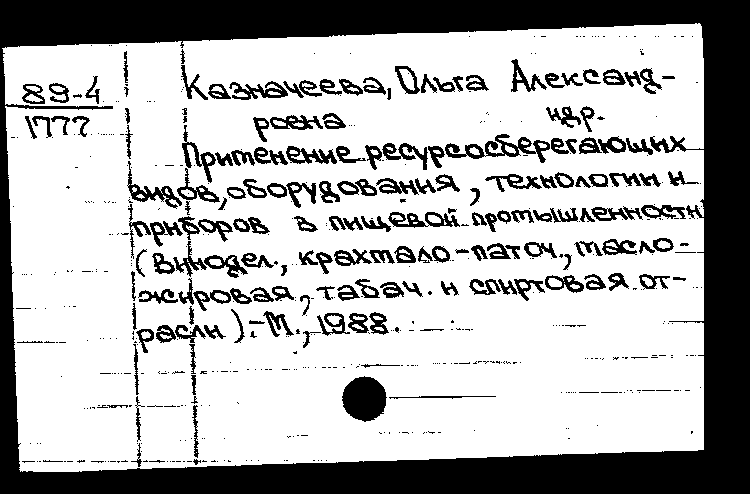 89-4
1777
Казначеева, Ольга Александ-
ровна и др.
Применение ресурсосберегающих
видов, оборудования, технологии и
приборов в пищевой промышленности
(винодел., крахмало-паточ., масло-
жировая, табач. и спиртовая от-
расли).-М., 1988.